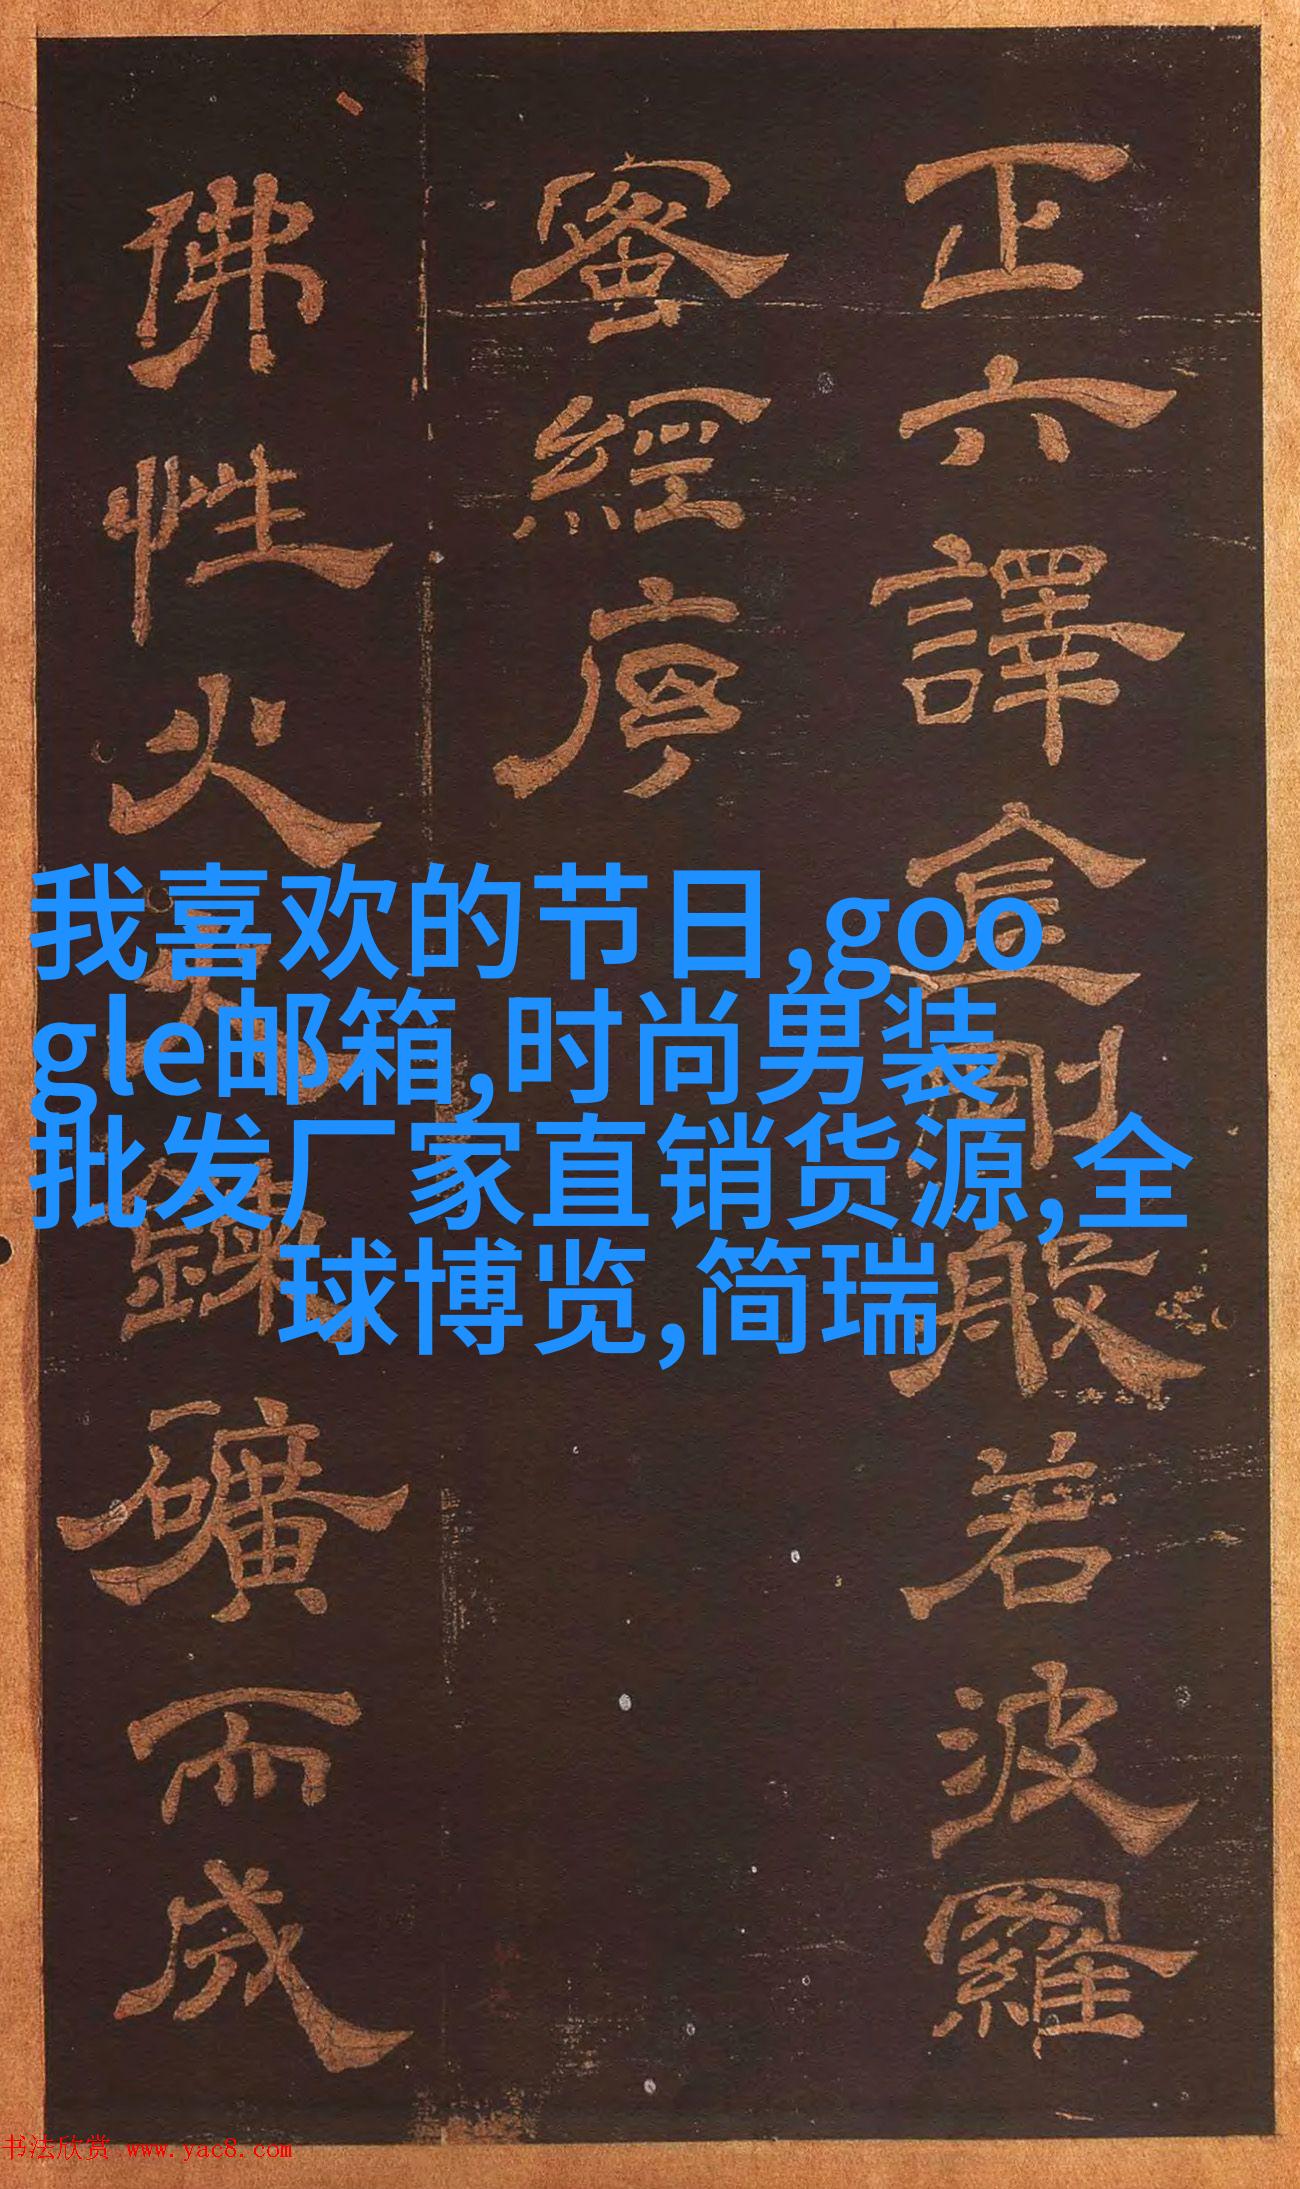 正六譯金剛般若波羅
蜜經序
佛性火鍊礦而成
我喜欢的节日,goo
gle邮箱,时尚男装
批发厂家直销货源,全
球博览,简瑞
书法欣赏 www.yac8.com